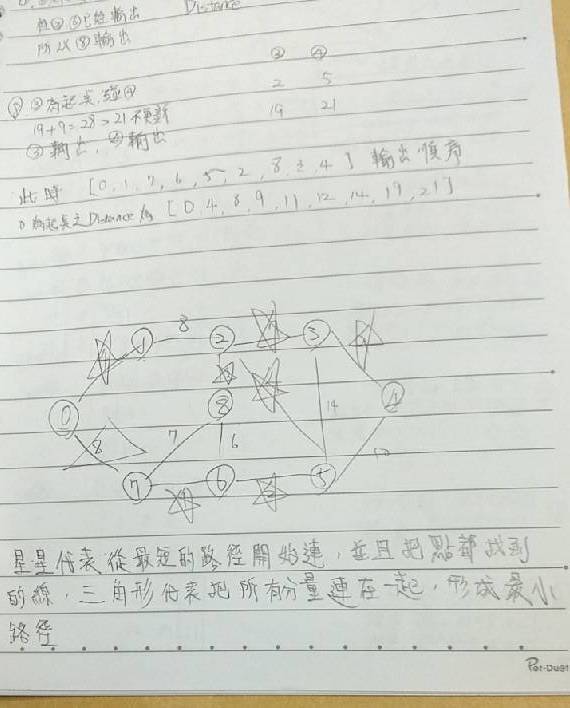 Distance
但②⑤已經輸出
所以⑧輸出
③ ④
2 5
19 21
③為起點,碰④
19+9=28>21不更新
③輸出,④輸出
此時 [0,1,7,6,5,2,8,3,4] 輸出順序
0為起點之Distance為 [0,4,8,9,11,12,14,19,21]
① 8 ② ③
⓪ ⑧ 14 ④
8 7 6
⑦ ⑥ ⑤ 10
星星代表從最短的路徑開始連,並且把點都找到
的線,三角形代表把所有分量連在一起,形成最小
路徑